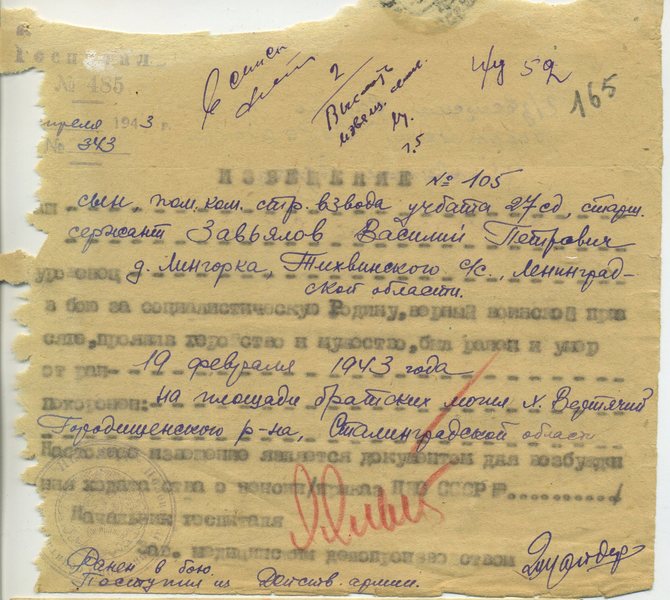 Госпиталь
№ 485
апреля 1943 г.
№ 343
в списк
2
Выслать
извещ.
г.5
п/д 52
165
ИЗВЕЩЕНИЕ № 105
сын, пом. ком. стр. взвода учбата 27 сд, старш.
сержант Завьялов Василий Петрович
уроженец д. Лингорка, Тихвинского с/с., Ленинград-
ской области.
в бою за социалистическую Родину, верный воинской прися
сяге, проявив геройство и мужество, был ранен и умер
от ран 19 февраля 1943 года
похоронен: на площади братских могил х. Вертячий
Городищенского р-на, Сталинградской области
Настоящее извещение является документом для возбужде
ния ходатайства о пенсии/приказ НКО СССР № .........../
Начальник госпиталя
Зав. медицинским делопроизводством
Ранен в бою.
Поступил из действ. армии.